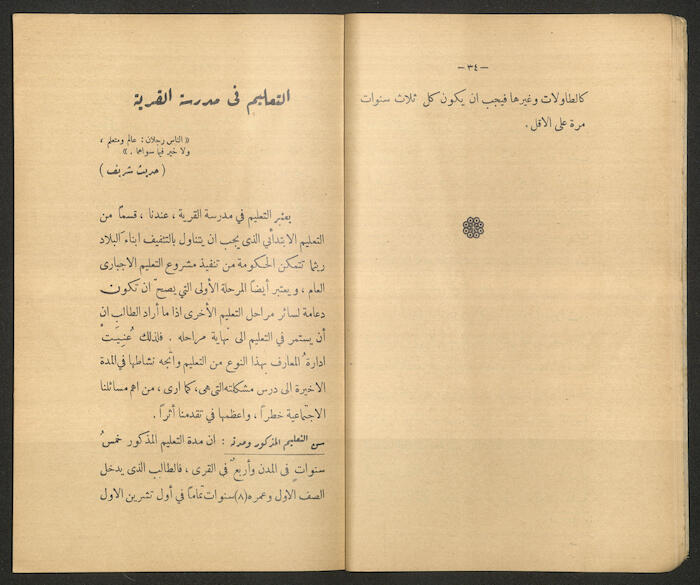 — ٣٤ —
كالطاولات وغيرها فيجب ان يكون كل ثلاث سنوات
مرة على الاقل .
التعليم فى مدرسة القرية
« الناس رجلان : عالم ومتعلم ،
ولا خير فيما سواهما . »
( حديث شريف )
يعتبر التعليم في مدرسة القرية ، عندنا ، قسمًا من
التعليم الابتدأئي الذى يجب ان يتناول بالتثقيف ابناء البلاد
ريثما تتمكن الحكومة من تنفيذ مشروع التعليم الاجبارى
العام ، ويعتبر أيضاً المرحلة الأولى التي يصحّ ان تكون
دعامة لسائر مراحل التعليم الأخرى اذا ما أراد الطالب ان
أن يستمر في التعليم الى نهاية مراحله . فلذلك عُنِيَتْ
ادارةُ المعارف بهذا النوع من التعليم واتّجه نشاطها في المدة
الاخيرة الى درس مشكلته التى هى ، كما ارى ، من اهم مسائلنا
الاجتماعية خطراً ، واعظمها في تقدمنا أثراً .
سن التعليم المذكور ومدته : ان مدة التعليم المذكور خمسُ
سنواتٍ فى المدن وأربعٌ فى القرى ، فالطالب الذى يدخل
الصف الاول وعمره (٨) سنوات تمامًا في أول تشرين الاول